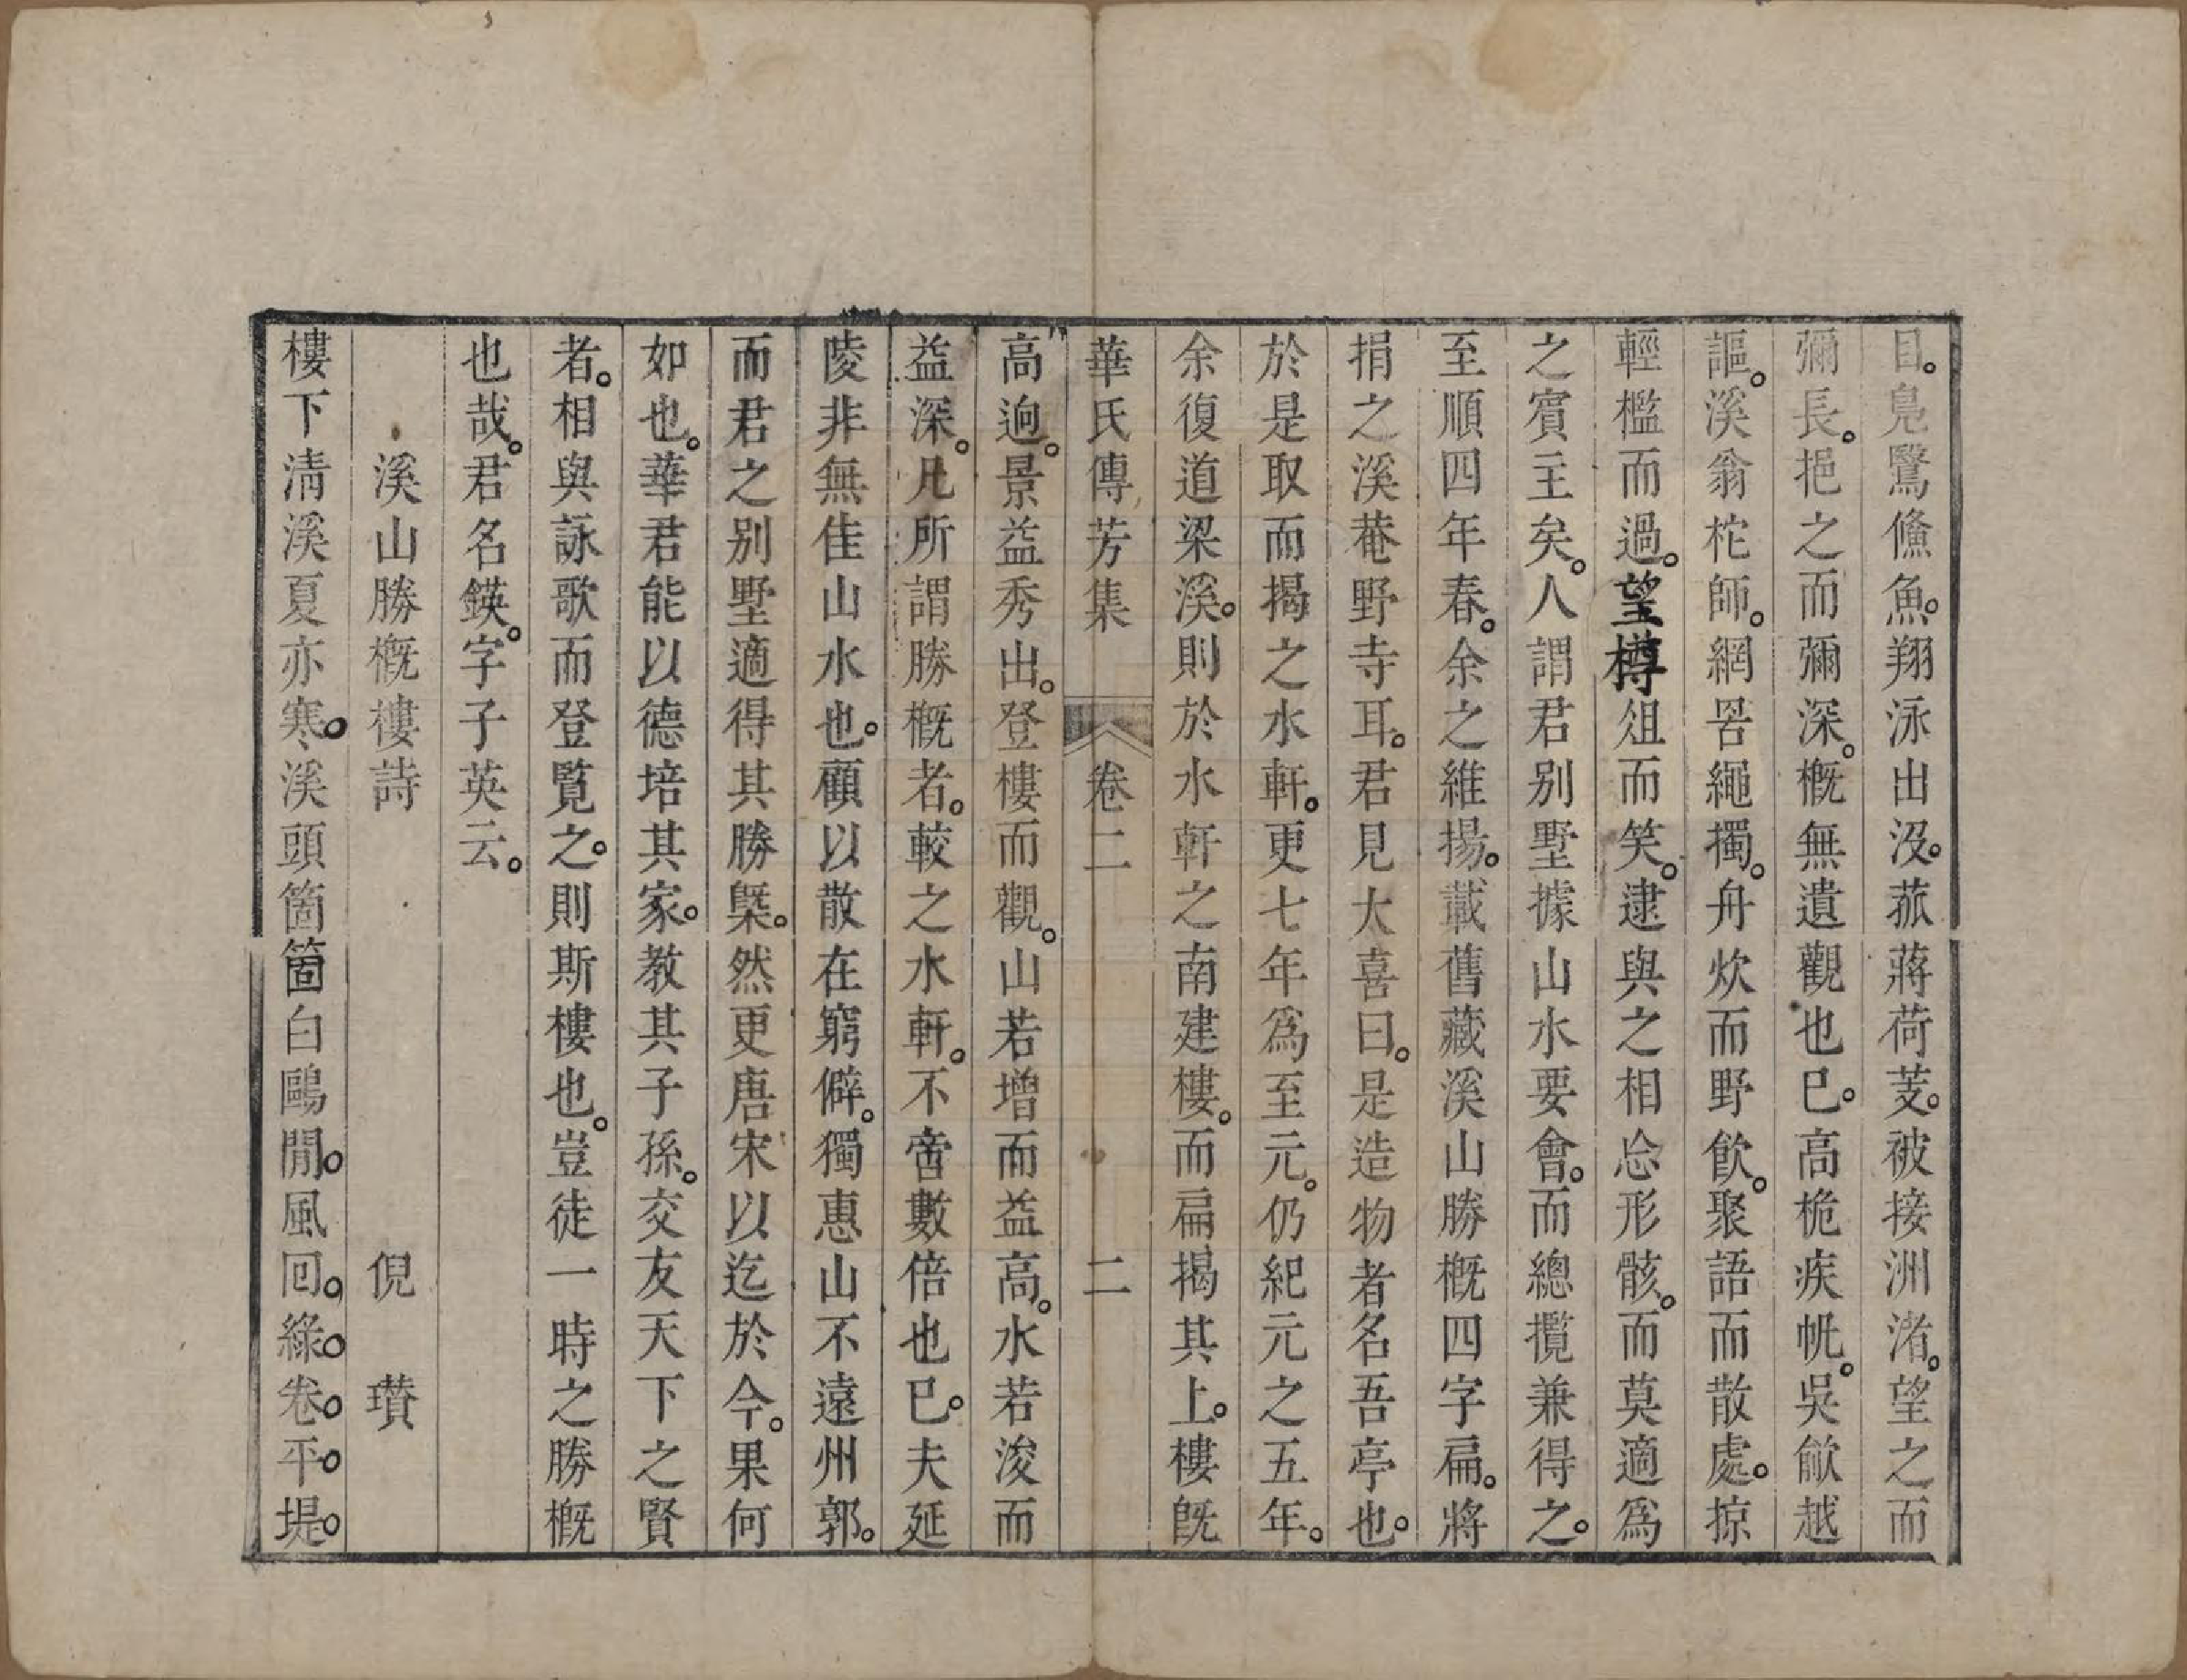 目。鳧鷖鯈魚。翔泳出沒。菰蔣荷芰。被接洲渚。望之而
彌長。挹之而彌深。槪無遺觀也已。高桅疾帆。吳歈越
謳。溪翁柁師。網罟繩擉。舟炊而野飲。聚語而散處。掠
輕檻而過。望樽俎而笑。逮與之相忘形骸。而莫適爲
之賓主矣。人謂君別墅據山水要會。而總攬兼得之。
至順四年春。余之維揚。載舊藏溪山勝槪四字扁。將
捐之溪菴野寺耳。君見大喜曰。是造物者名吾亭也。
於是取而揭之水軒。更七年爲至元。仍紀元之五年。
余復道梁溪。則於水軒之南建樓。而扁揭其上。樓旣
華氏傳芳集 卷二 二
高逈。景益秀出。登樓而觀。山若增而益高。水若浚而
益深。凡所謂勝槪者。較之水軒。不啻數倍也已。夫延
陵非無佳山水也。顧以散在窮僻。獨惠山不遠州郭。
而君之別墅適得其勝槩。然更唐宋以迄於今。果何
如也。華君能以德培其家。教其子孫。交友天下之賢
者。相與詠歌而登覽之。則斯樓也。豈徒一時之勝槪
也哉。君名鍈。字子英云。
溪山勝槪樓詩 倪瓚
樓下淸溪夏亦寒。溪頭箇箇白鷗閒。風回。綠。卷。平。堤。